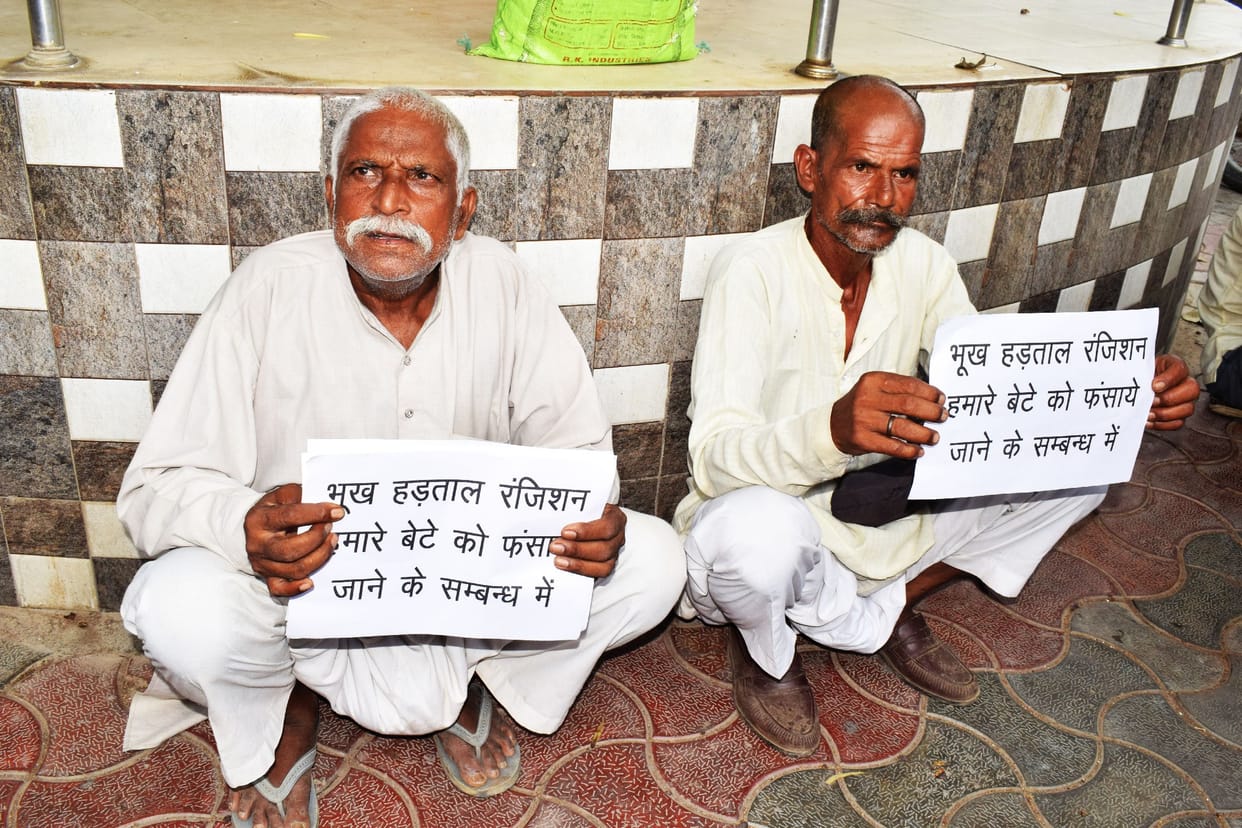 R.K. INDUSTRIES
भूख हड़ताल रंजिशन
हमारे बेटे को फंसाये
जाने के सम्बन्ध में
भूख हड़ताल रंजिशन
हमारे बेटे को फंसाये
जाने के सम्बन्ध में